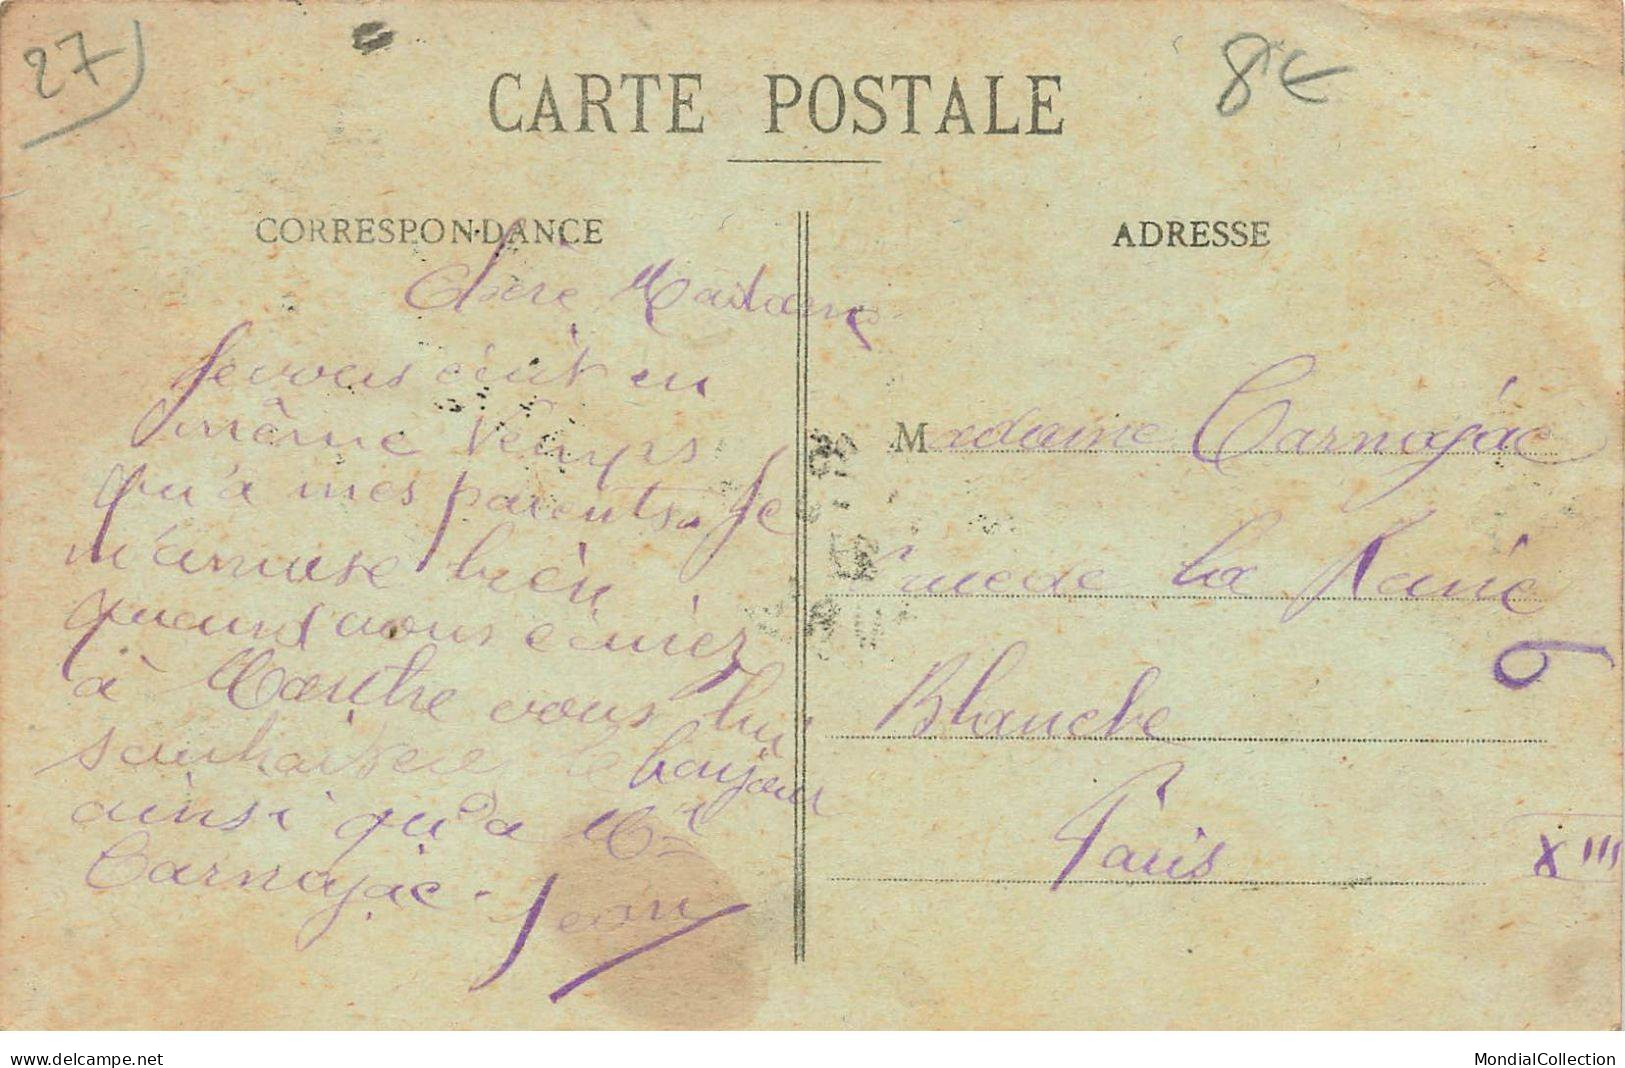 27
8€
CARTE POSTALE
CORRESPONDANCE
Chère Madame
Je vous écrit en
même temps
qu'à mes parents. Je
m'amuse bien.
quand vous écrirez
à Marthe vous lui
souhaiterez le bonjour
ainsi qu'a Mr
Carnajac. Jean
ADRESSE
Madame Carnajac
rue de la Reine
Blanche 9
Paris XIII
delcampe.net
MondialCollection